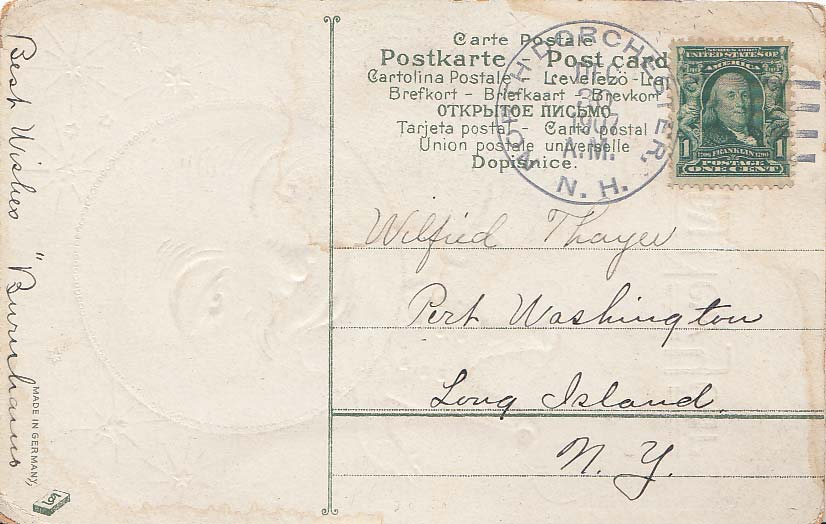 Carte Postale
Postkarte - Post card
Cartolina Postale - Levelező-L
Brefkort - Briefkaart - Brevkort
ОТКРЫТОЕ ПИСЬМО
Tarjeta postal - Carto postal
Union postale universelle
Dopisnice.
NORTH DORCHESTER,
DEC
30
1907
A.M.
N. H.
SERIES 1902
UNITED STATES OF
AMERICA
1 FRANKLIN 1
POSTAGE
ONE CENT
Wilfied Thayer
Port Washington
Long Island.
N. Y.
Best Wishes "Burnhams
MADE IN GERMANY,